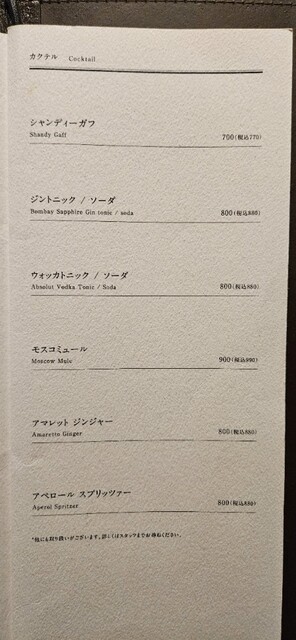 カクテル Cocktail
シャンディーガフ
Shandy Gaff 700(税込770)
ジントニック / ソーダ
Bombay Sapphire Gin tonic / soda 800(税込880)
ウォッカトニック / ソーダ
Absolut Vodka Tonic / Soda 800(税込880)
モスコミュール
Moscow Mule 900(税込990)
アマレット ジンジャー
Amaretto Ginger 800(税込880)
アペロール スプリッツァー
Aperol Spritzer 800(税込880)
*他にも取り扱いがございます。詳しくはスタッフまでお尋ねください。